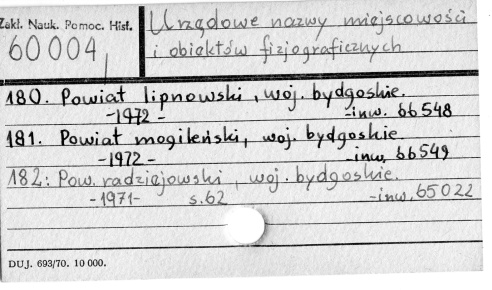 Zakł. Nauk. Pomoc. Hist.
60004
Urzędowe nazwy miejscowości
i obiektów fizjograficznych
180. Powiat lipnowski, woj. bydgoskie.
-1972- -inw. 66548
181. Powiat mogileński, woj. bydgoskie.
-1972- -inw. 66549
182. Pow. radziejowski, woj. bydgoskie.
-1971- s.62 -inw. 65022
DUJ. 693/70. 10 000.